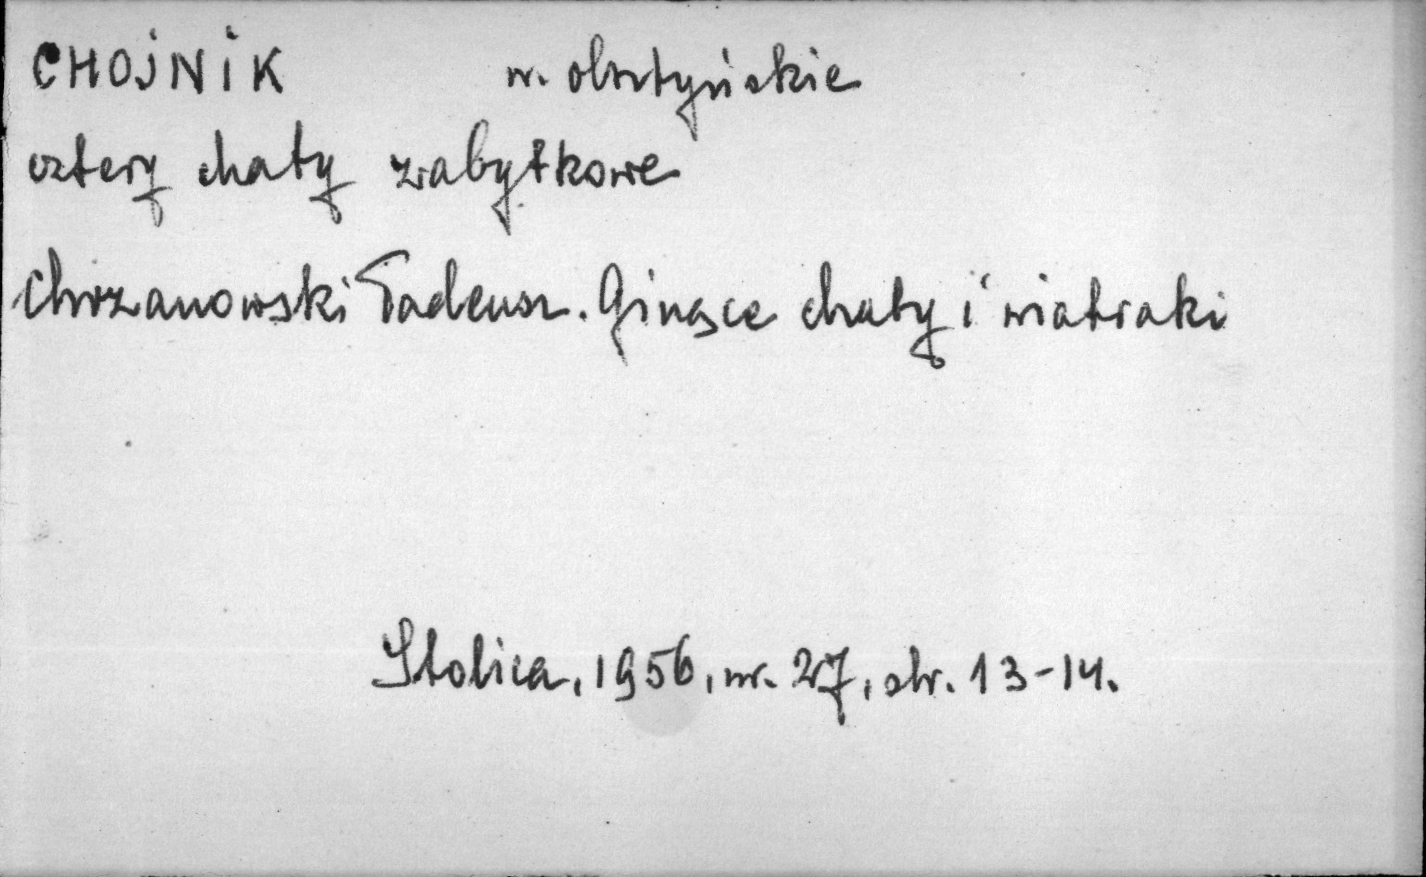 CHOJNIK w. olsztyńskie
cztery chaty zabytkowe
Chrzanowski Tadeusz. Ginące chaty i wiatraki
Stolica, 1956, nr. 27, str. 13-14.